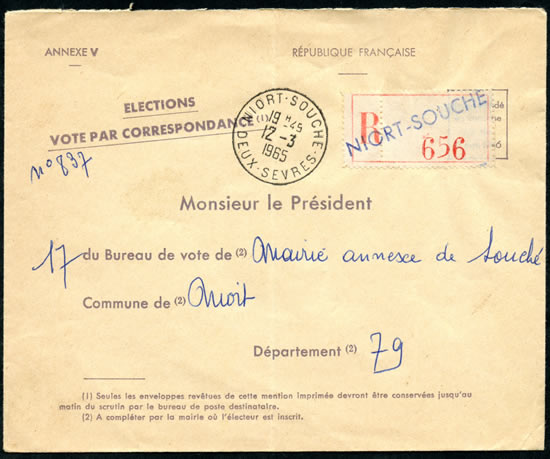 ANNEXE V
RÉPUBLIQUE FRANÇAISE
ELECTIONS
VOTE PAR CORRESPONDANCE (1)
nº 837
NIORT-SOUCHE
19 H 45
12-3
1965
DEUX-SEVRES
R
NIORT-SOUCHE
656
Monsieur le Président
17 du Bureau de vote de (2) Mairie annexe de Souché
Commune de (2) Niort
Département (2) 79
(1) Seules les enveloppes revêtues de cette mention imprimée devront être conservées jusqu'au
matin du scrutin par le bureau de poste destinataire.
(2) A compléter par la mairie où l'électeur est inscrit.